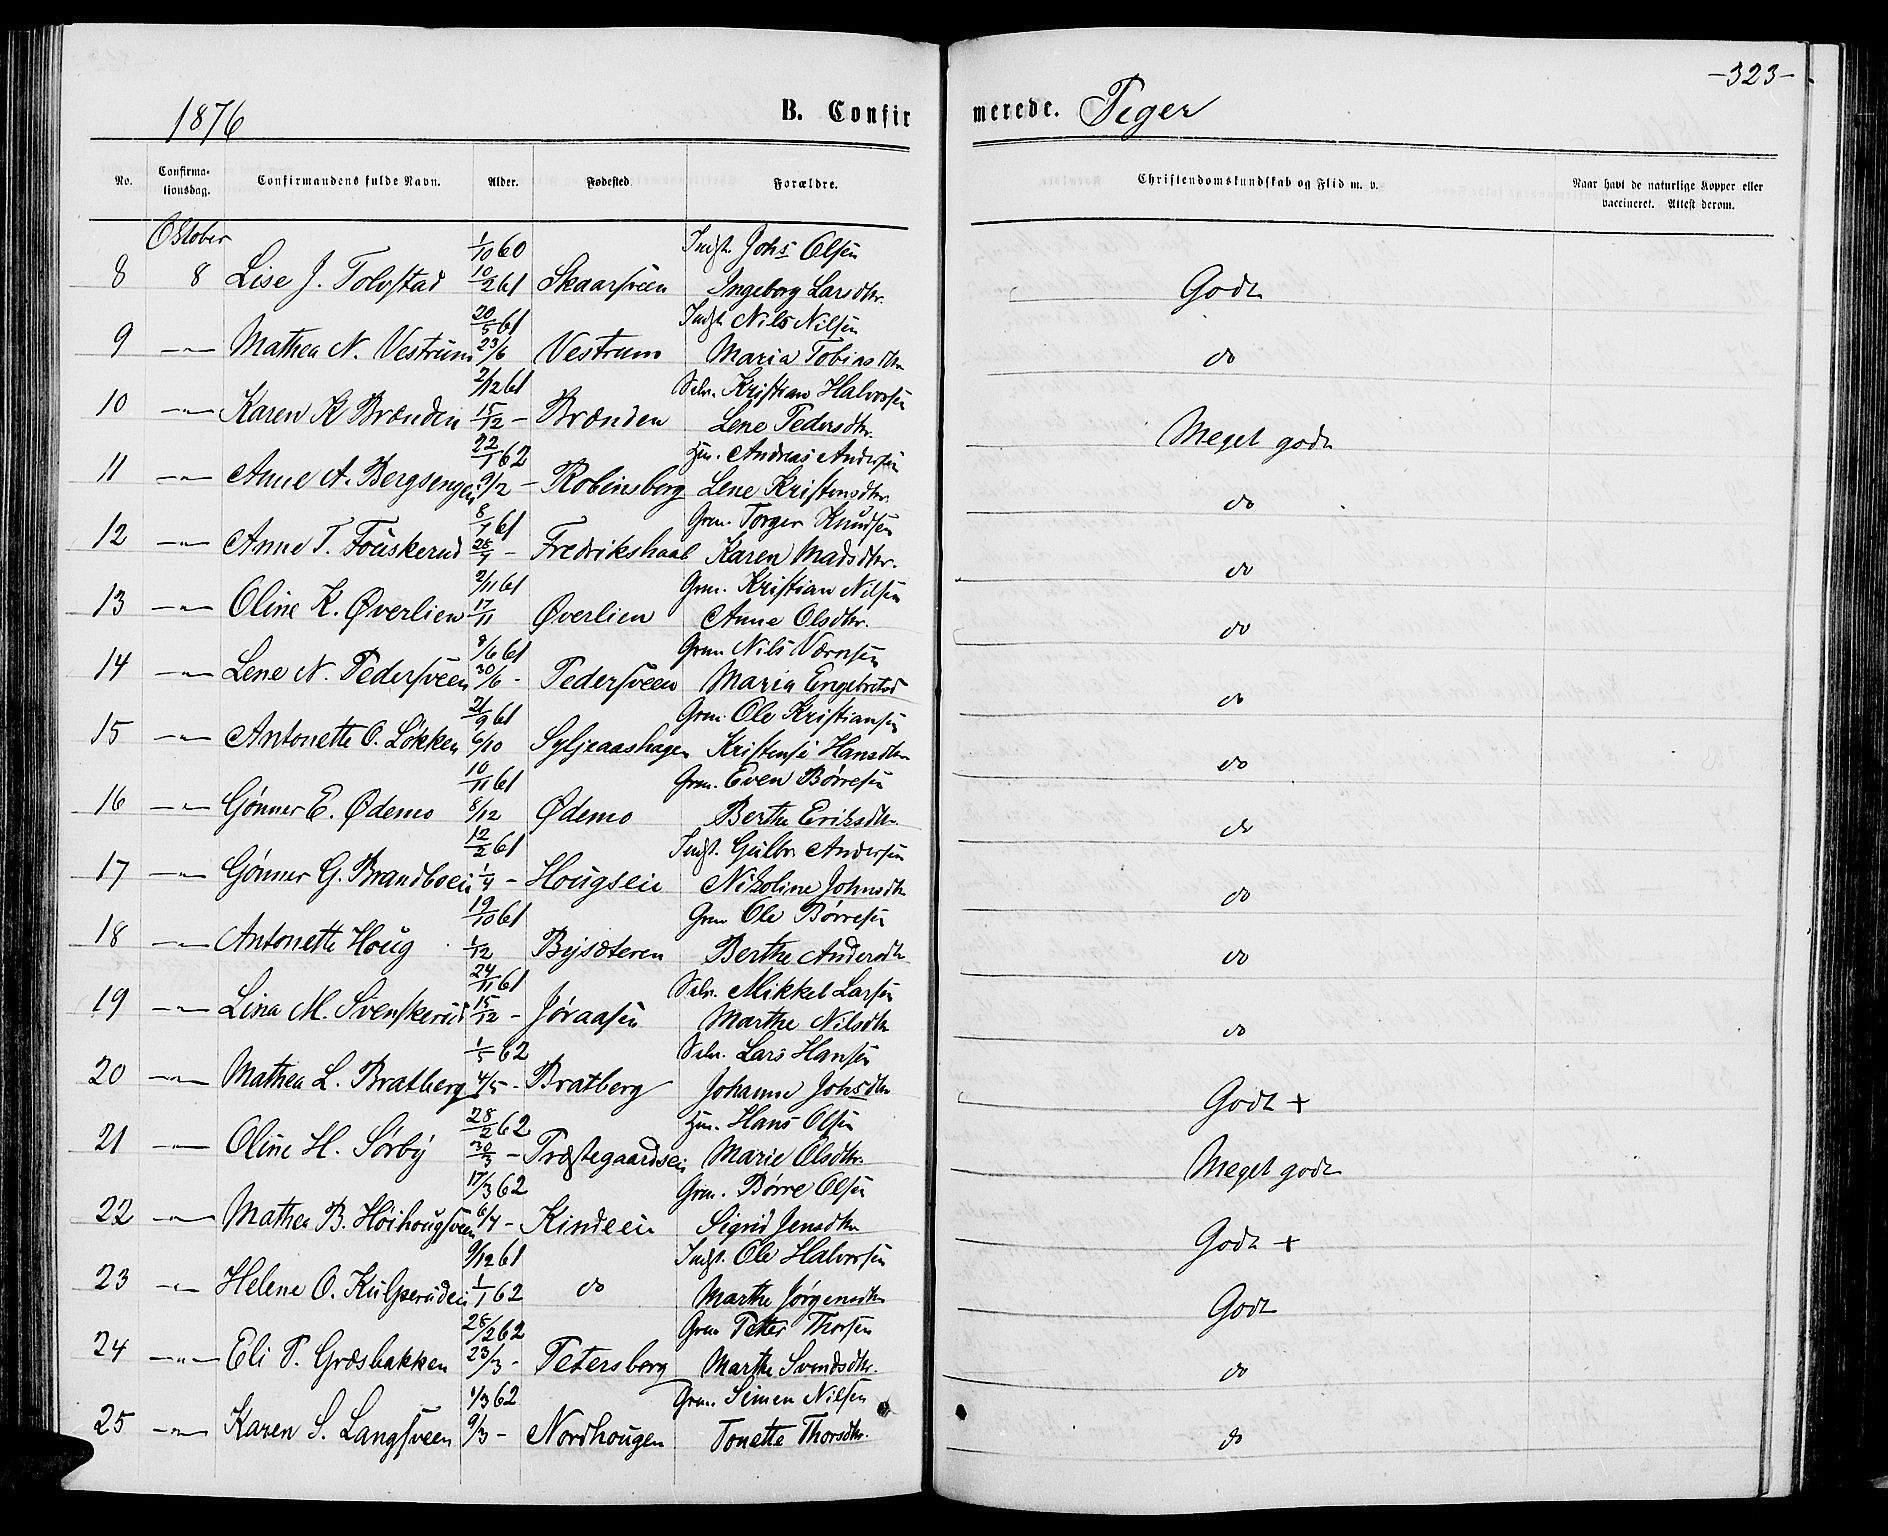 -323-
1876 B. Confirmerede. Piger
No. Confirmationsdag. Confirmandens fulde Navn. Alder. Fødested. Forældre. Christendomskundskab og Flid m. v. Naar havt de naturlige Kopper eller vaccineret. Attest derom.
Oktober 1/10 60 Indst. Johs Olsen
8 8 Lise J. Tolvstad 10/2 61 Skaarsveen Ingeborg Larsdtr. Godt
20/5 61 Indst. Nils Nilsen
9 —"— Mathea N. Vestrum 23/6 Vestrum Maria Tobiasdtr do
2/12 61 Selv. Kristian Halvorsen
10 —"— Karen K Brænden 15/12 - Brænden Lene Pedersdtr. Meget godt
22/1 62 Hm. Andreas Andersen
11 —"— Anne A. Bergsengen 9/2 - Robinsborg Lene Kristensdtr. do
8/7 61 Grm. Torger Knudsen
12 —"— Anne T. Fouskerud 28/7 - Fredrikshaab Karen Madsdtr. do
2/11 61 Grm. Kristian Nilsen
13 —"— Oline K. Øverlien 17/11 Øverlien Anne Olsdtr. do
9/6 61 Grm Nils
14 —"— Lene N. Pedersveen 30/6 - Pedersveen Maria Engebretsd do
21/9 61 Grm. Ole Kristiansen
15 —"— Antonette O. Løkken 6/10 Syljeaashagen Kristense Hansdtr do
10/11 61 Grm. Even Børresen
16 —"— Gønner E. Ødemo 8/12 Ødemo Berthe Eriksdtr. do
12/2 61 Indst. Gulbr Andersen
17 —"— Gønner G. Brandboen 1/4 - Hougseie Nikoline Johnsdtr do
19/10 61 Grm Ole Børresen
18 —"— Antonette Houg 1/12 Bysæteren Berthe Andersdtr do
24/11 61 Selv. Mikkel Larsen
19 —"— Lina M. Svenskerud 15/12 - Jøraasen Marthe Nilsdtr do
1/5 62 Selv. Lars Hansen
20 —"— Mathea L. Bratberg 4/5 - Bratberg Johanne Johsdtr Godt +
28/2 62 Hm. Hans Olsen
21 —"— Oline H. Sørby 30/3 - Præstegaardseie Marie Olsdtr. Meget godt
17/3 62 Grm. Børre Olsen
22 —"— Mathea B. Høihougsveen 6/4 - Kindeeie Sigrid Jensdtr Godt +
9/12 61 Indst. Ole Halvorsen
23 —"— Helene O. Kulperudeie 1/1 62 do Marthe Jørgensdtr Godt
28/2 62 Grm Petter Thorsen
24 —"— Eli P. Græsbakken 23/3 - Petersborg Marthe Svendsdtr. do
1/3 62 Grm. Simen Nilsen
25 —"— Karen S. Langsveen 9/3 - Nordhougen Tonette Thorsdtr. do